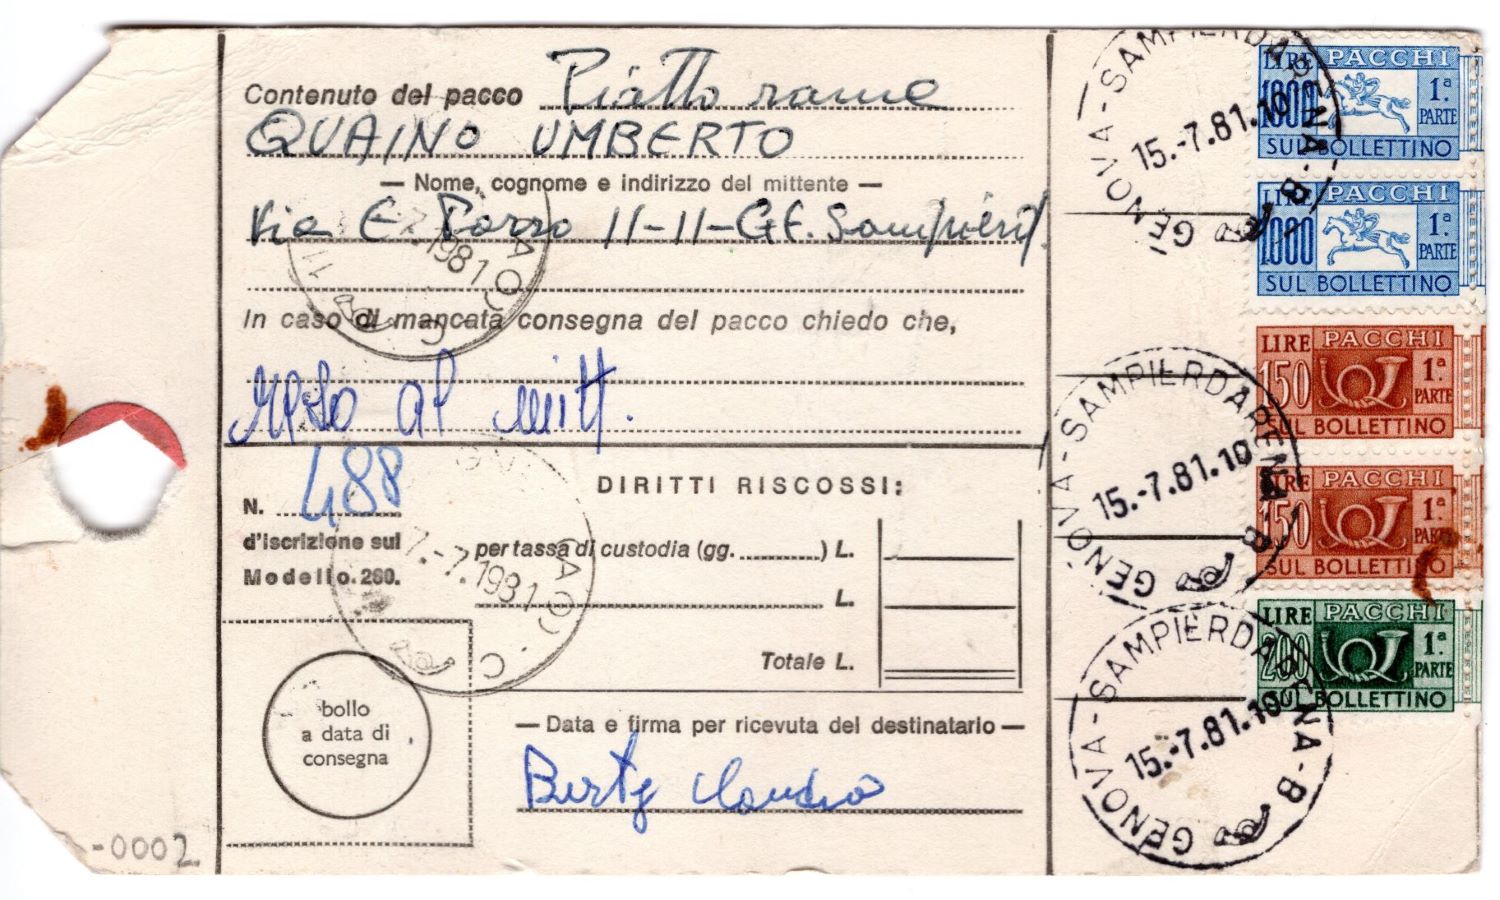 Contenuto del pacco Piatto rame
QUAINO UMBERTO
— Nome, cognome e indirizzo del mittente —
Via E 11-11-GE.
In caso di mancata consegna del pacco chiedo che,
al mitt.
N. 488
d'iscrizione sul
Modello 260.
DIRITTI RISCOSSI:
per tassa di custodia (gg. ) L.
L.
Totale L.
bollo
a data di
consegna
— Data e firma per ricevuta del destinatario —
Claudio
-0002
7.1981
(AO)
7.-7.1981
(AO)
GENOVA-SAMPIERDARENA-B
15.-7.81.10
LIRE PACCHI
1000 1ª
PARTE
SUL BOLLETTINO
LIRE PACCHI
1000 1ª
PARTE
SUL BOLLETTINO
GENOVA-SAMPIERDARENA-B
15.-7.81.10
LIRE PACCHI
150 1ª
PARTE
SUL BOLLETTINO
LIRE PACCHI
150 1ª
PARTE
SUL BOLLETTINO
GENOVA-SAMPIERDARENA-B
15.-7.81.10
LIRE PACCHI
200 1ª
PARTE
SUL BOLLETTINO